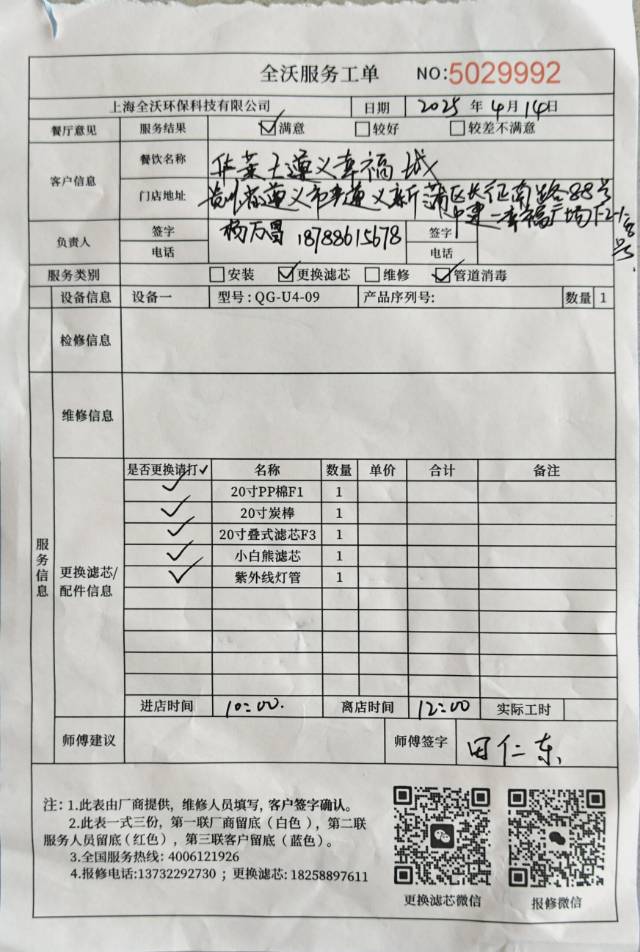 全沃服务工单 NO:5029992
上海全沃环保科技有限公司 日期 2025 年 4 月 14 日
餐厅意见 服务结果 ☑满意 □较好 □较差不满意
客户信息 餐饮名称 华莱士遵义幸福城
门店地址 贵州省遵义市遵义新蒲区长征南路88号
中建一幸福广场
负责人 签字 杨万昌 18788615678 签字
电话 电话
服务类别 □安装 ☑更换滤芯 □维修 ☑管道消毒
设备信息 设备一 型号:QG-U4-09 产品序列号: 数量 1
检修信息
维修信息
服务信息
更换滤芯/配件信息
是否更换请打✓ 名称 数量 单价 合计 备注
✓ 20寸PP棉F1 1
✓ 20寸炭棒 1
✓ 20寸叠式滤芯F3 1
✓ 小白熊滤芯 1
✓ 紫外线灯管 1
进店时间 10:00. 离店时间 12:00 实际工时
师傅建议 师傅签字 田仁东
注: 1.此表由厂商提供, 维修人员填写, 客户签字确认。
2.此表一式三份, 第一联厂商留底(白色), 第二联
服务人员留底(红色), 第三联客户留底(蓝色)。
3.全国服务热线: 4006121926
4.报修电话:13732292730 ; 更换滤芯: 18258897611
更换滤芯微信 报修微信